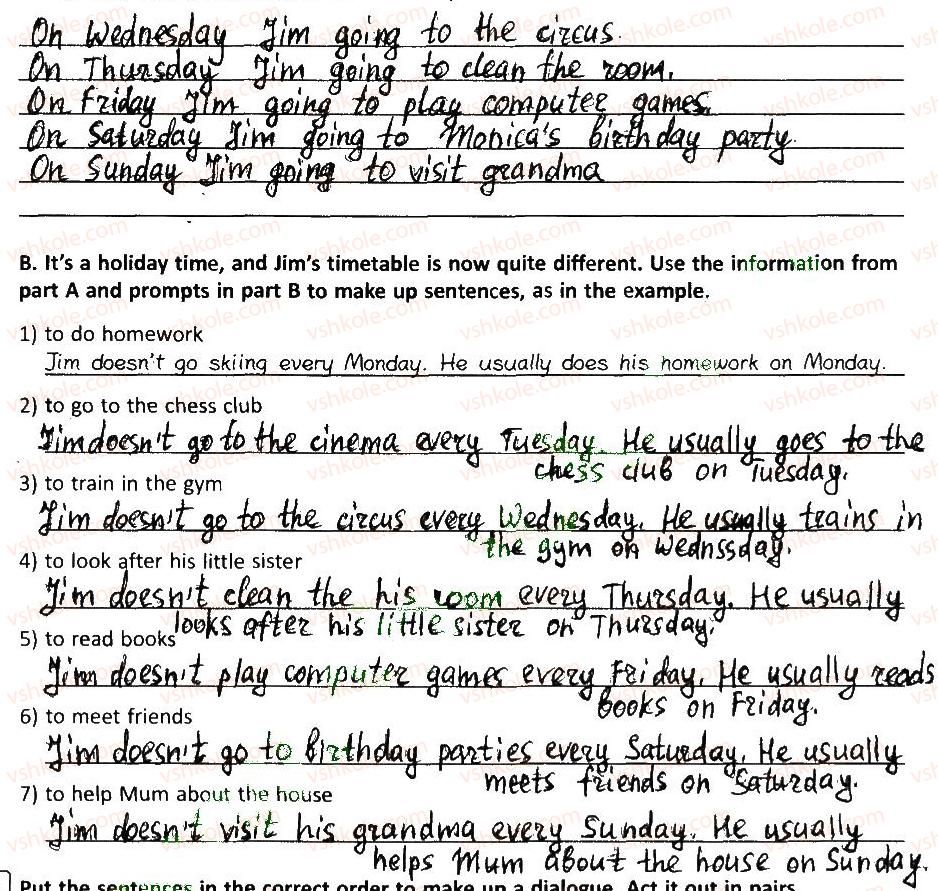 On Wednesday Jim going to the circus.
On Thursday Jim going to clean the room.
On Friday Jim going to play computer games.
On Saturday Jim going to Monica's birthday party.
On Sunday Jim going to visit grandma
B. It's a holiday time, and Jim's timetable is now quite different. Use the information from
part A and prompts in part B to make up sentences, as in the example.
1) to do homework
Jim doesn't go skiing every Monday. He usually does his homework on Monday.
2) to go to the chess club
Jim doesn't go to the cinema every Tuesday. He usually goes to the
chess club on Tuesday.
3) to train in the gym
Jim doesn't go to the circus every Wednesday. He usually trains in
the gym on Wednssday.
4) to look after his little sister
Jim doesn't clean the his room every Thursday. He usually
looks after his little sister on Thursday.
5) to read books
Jim doesn't play computer games every Friday. He usually reads
books on Friday.
6) to meet friends
Jim doesn't go to birthday parties every Saturday. He usually
meets friends on Saturday.
7) to help Mum about the house
Jim doesn't visit his grandma every Sunday. He usually
helps Mum about the house on Sunday.
Put the sentences in the correct order to make up a dialogue. Act it out in pairs